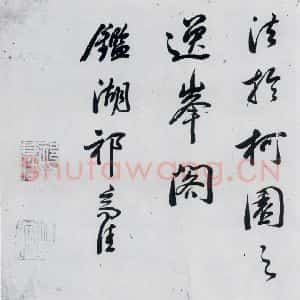 法於柯園之
峯閣
鑑湖祁豸佳
Shufawang.CN